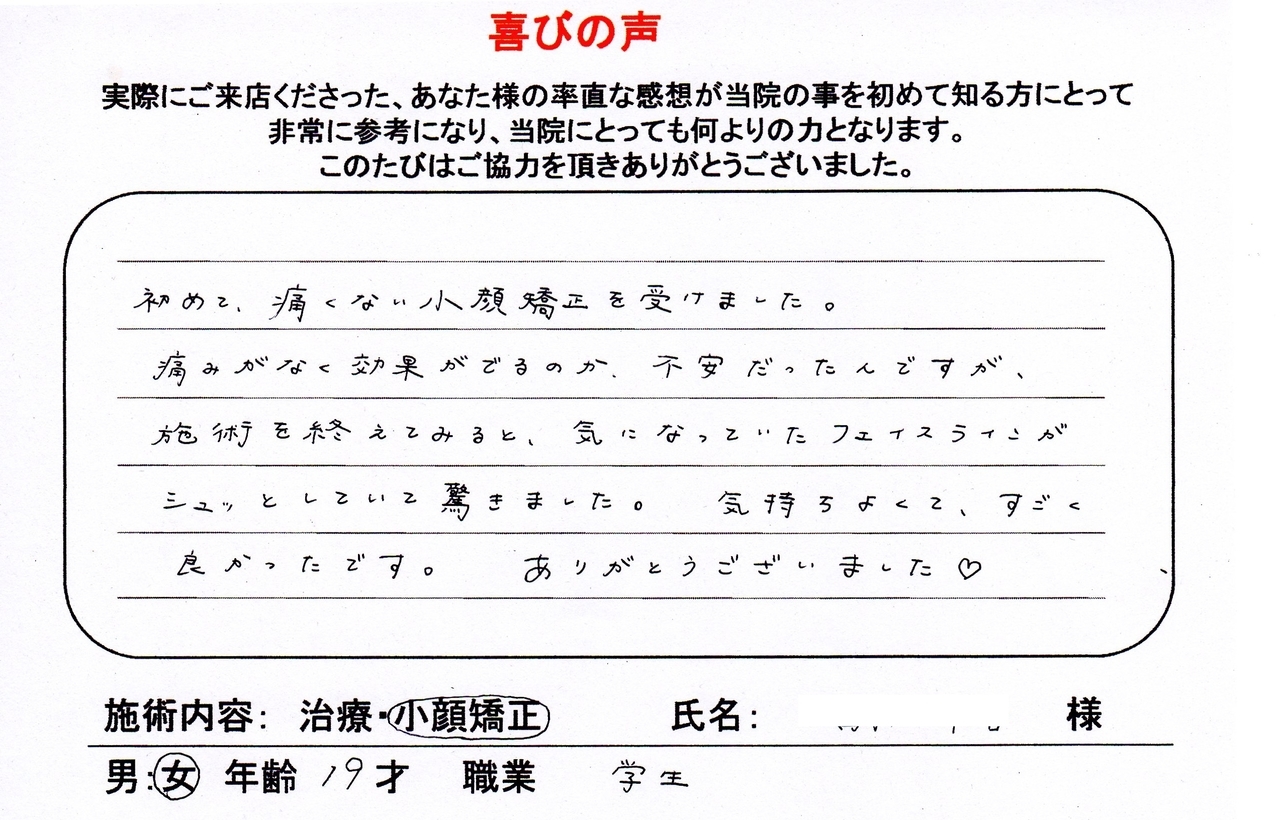 喜びの声
実際にご来店くださった、あなた様の率直な感想が当院の事を初めて知る方にとって
非常に参考になり、当院にとっても何よりの力となります。
このたびはご協力を頂きありがとうございました。
初めて、痛くない小顔矯正を受けました。
痛みがなく効果がでるのか、不安だったんですが、
施術を終えてみると、気になっていたフェイスラインが
シュッとしていて驚きました。 気持ちよくて、すごく
良かったです。 ありがとうございました♡
施術内容: 治療・小顔矯正 氏名: 様
男:女 年齢 19才 職業 学生